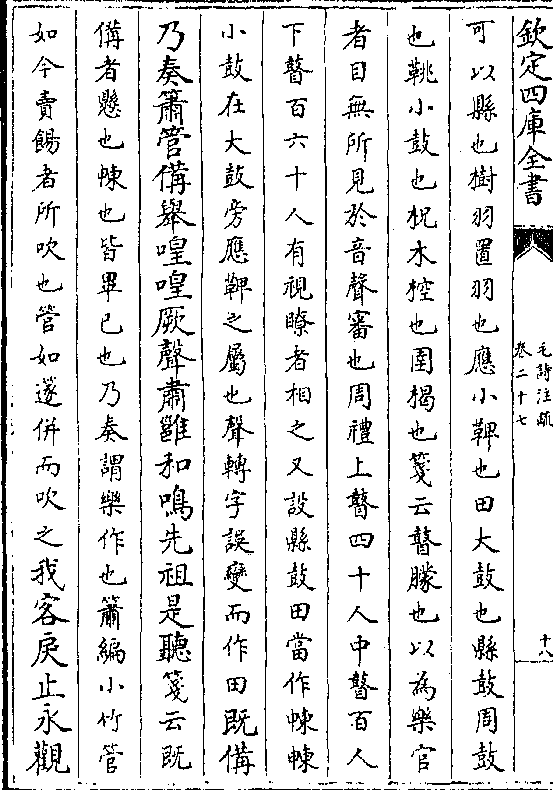 欽定四庫全書
毛詩注疏
卷二十七
十八
可以縣也樹羽置羽也應小鞞也田大鼓也縣鼓周鼓
也鞉小鼓也柷木椌也圉楬也箋云瞽矇也以為樂官
者目無所見於音聲審也周禮上瞽四十人中瞽百人
下瞽百六十人有視瞭者相之又設縣鼓田當作朄朄
小鼓在大鼓旁應鞞之屬也聲轉字誤變而作田既備
乃奏簫管備舉喤喤厥聲肅雝和鳴先祖是聽箋云既
備者懸也朄也皆畢已也乃奏謂樂作也簫編小竹管
如今賣餳者所吹也管如篴併而吹之我客戾止永觀